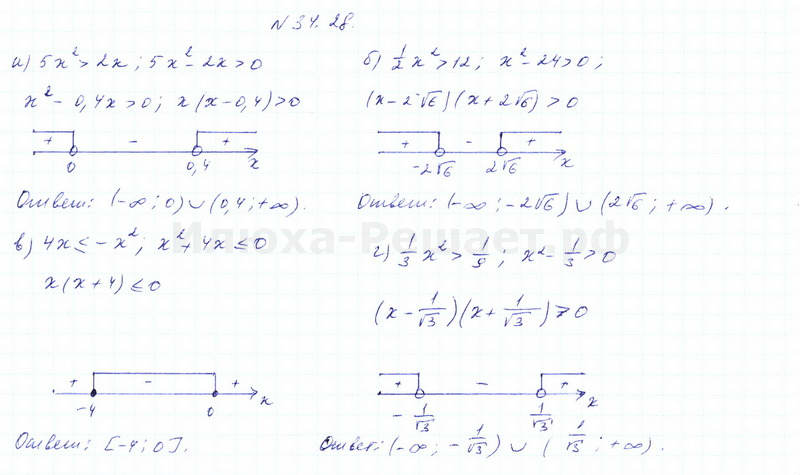 N 34.28.
а) 5x² > 2x; 5x² - 2x > 0
x² - 0,4x > 0; x(x - 0,4) > 0
+ - +
0 0,4 x
Ответ: (-∞; 0) ∪ (0,4; +∞).
б) 1/2 x² > 12; x² - 24 > 0;
(x - 2√6)(x + 2√6) > 0
+ - +
-2√6 2√6 x
Ответ: (-∞; -2√6) ∪ (2√6; +∞).
Илюха-Решает.рф
в) 4x ≤ -x²; x² + 4x ≤ 0
x(x + 4) ≤ 0
+ - +
-4 0 x
Ответ: [-4; 0].
г) 1/3 x² > 1/9; x² - 1/3 > 0
(x - 1/√3)(x + 1/√3) > 0
+ - +
-1/√3 1/√3 x
Ответ: (-∞; -1/√3) ∪ (1/√3; +∞).